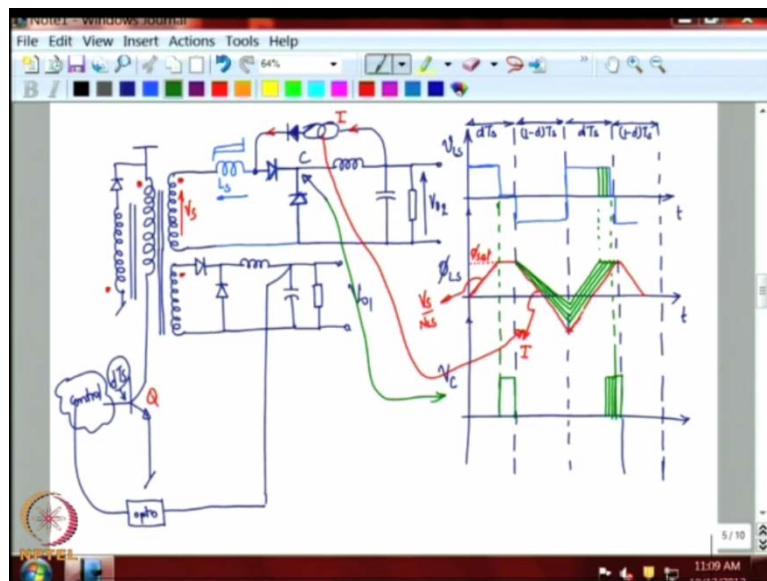 Note1 - Windows Journal
File Edit View Insert Actions Tools Help
64%
B I
I
C
Ls
Vs
V02
V01
dTs
control
Q
opto
dTs
(1-d)Ts
dTs
(1-d)Ts
VLS
t
ϕsat
ϕLS
t
I
VC
NPTEL
5 / 10
11:09 AM